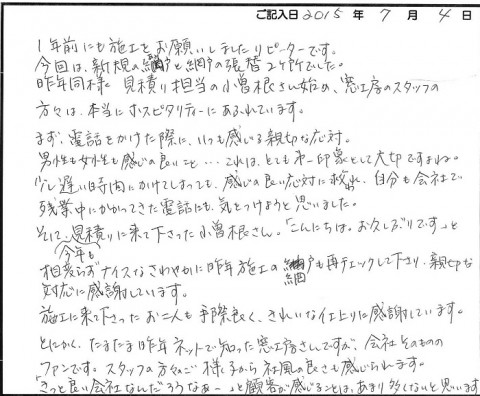 ご記入日 2015 年 7 月 4 日
1年前にも施工をお願いしましたリピーターです。
今回は、新規の網戸と網戸の張替2ヶ所でした。
昨年同様、見積り担当の小曽根さん始め、窓工房のスタッフの
方々は、本当にホスピタリティーにあふれています。
まず、電話をかけた際に、いつも感じる親切な応対。
男性も女性も感じの良いこと…これは、とても第一印象として大切ですよね。
少し遅い時間にかけてしまっても、感じの良い応対に救われ、自分も会社で
残業中にかかってきた電話にも、気をつけようと思いました。
そして、見積りに来て下さった小曽根さん。「こんにちは。お久しぶりです。」と
今年も
相変らずナイスなさわやかに昨年施工の網戸も再チェックして下さり、親切な
対応に感謝しています。
施工に来て下さったお二人も手際良く、きれいな仕上りに感謝しています。
とにかく、たまたま昨年ネットで知った窓工房さんですが、会社そのものの
ファンです。スタッフの方々のご様子から社風の良さも感じられます。
「きっと良い会社なんだろうなぁー」と顧客が感じることは、あまり多くないと思います